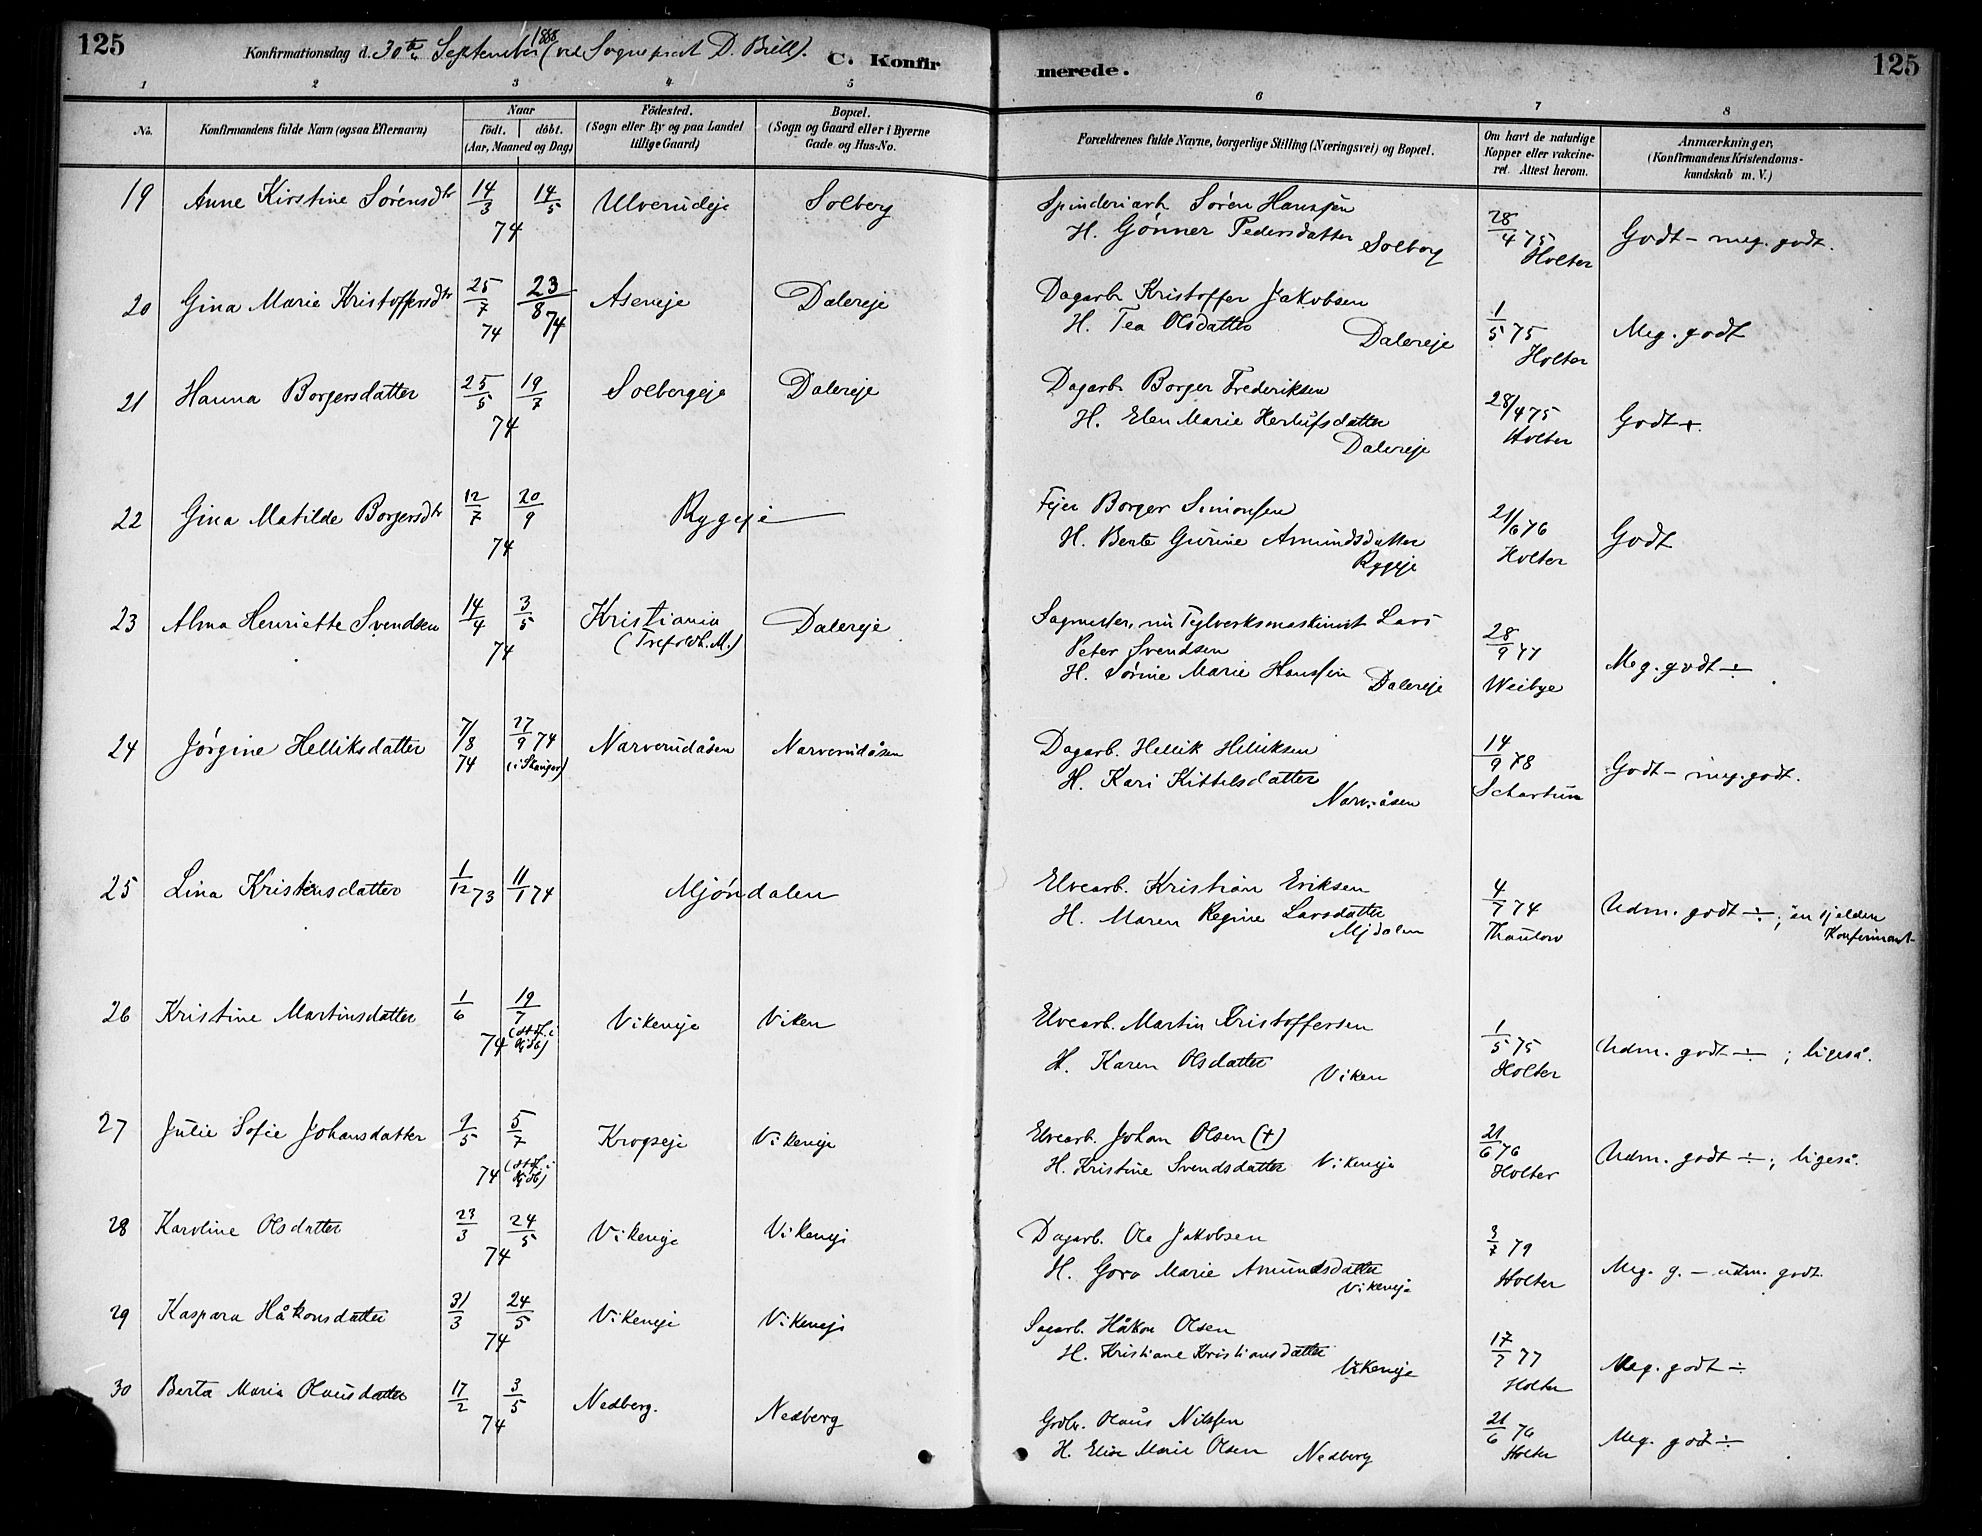 125
Konfirmationsdag d. 30te September 1888 (ved Sogneprest D. Bull).
C. Konfirmerede.
125
1 2 3 4 5 6 7 8
No.
Konfirmandens fulde Navn (ogsaa Efternavn)
Naar
födt. döbt.
(Aar, Maaned og Dag)
Födested.
(Sogn eller By og paa Landet
tillige Gaard)
Bopæl.
(Sogn og Gaard eller i Byerne
Gade og Hus-No.
Forældrenes fulde Navne, borgerlige Stilling (Næringsvei) og Bopæl.
Om havt de naturlige
Kopper eller vakcine-
ret. Attest herom.
Anmærkninger,
(Konfirmandens Kristendoms-
kundskab m. V.)
19 Anne Kirstine Sørensdtr 14/3 14/5 74 Ulverudeje Solberg
Spinderiarb. Søren Hanssen
H. Gønner Pedersdatter Solberg
28/4 75 Holter
Godt – meg. godt.
20 Gina Marie Kristoffersdtr 25/7 74 23/8 74 Aseneje Dalereje
Dagarb. Kristoffer Jakobsen
H. Tea Olsdatter Dalereje
1/5 75 Holter
Meg. godt
21 Hanna Borgersdatter 25/5 19/7 74 Solbergeje Dalereje
Dagarb. Borger Frederiksen
H. Elen Marie Herlufsdatter
Dalereje
28/4 75 Holter
Godt +.
22 Gina Matilde Borgersdtr 12/7 20/9 74 Ryggeje
Fejer Borger Simonsen
H. Berte Gurine Amundsdatter
Rygeje
21/6 76 Holter
Godt
23 Alma Henriette Svendsen 14/4 3/5 74 Kristiania
(Trefoldh. M.) Dalereje
Sagmester, nu Teglverksmaskinist Lars
Peter Svendsen
H. Sørine Marie Hanssen Dalereje
28/9 77 Weibye
Meg. godt ÷
24 Jørgine Helliksdatter 7/8 74 27/9 74 Narverudåsen Narverudåsen
Dagarb. Hellik Helliksen
H. Kari Kittelsdatter
Narv.åsen
14/9 78 Schartum
Godt – meg. godt.
25 Lina Kristensdatter 1/12 73 11/1 74 Mjøndalen
Elvearb. Kristian Eriksen
H. Maren Regine Larsdatter
Mjdalen
4/7 74 Thaulow
Udm. godt ÷; en sjelden
Konfirmant
26 Kristine Martinsdatter 1/6 19/7 74 Vikeneje Viken
Elvearb. Martin Kristoffersen
H. Karen Olsdatter Viken
1/5 75 Holter
Udm. godt ÷; ligeså.
27 Julie Sofie Johansdatter 9/5 5/7 74 Krogseje Vikeneje
Elvearb. Johan Olsen (†)
H. Kristine Svendsdatter Vikeneje
21/6 76 Holter
Udm. godt ÷; ligeså.
28 Karoline Olsdatter 23/3 24/5 74 Vikeneje Vikeneje
Dagarb. Ole Jakobsen
H. Goro Marie Amundsdatter
Vikeneje
3/7 79 Holter
Meg. g. – udm. godt
29 Kaspara Håkonsdatter 31/3 24/5 74 Vikeneje Vikeneje
Sagarb. Håkon Olsen
H. Kristiane Kristiansdatter
Vikeneje
17/7 77 Holter
Meg. godt ÷
30 Berta Maria Olausdatter 17/2 3/5 74 Nedberg. Nedberg
Grdbr. Olaus Nilssen
H. Elise Marie Olsen Nedberg
21/6 76 Holter
Meg. godt ÷